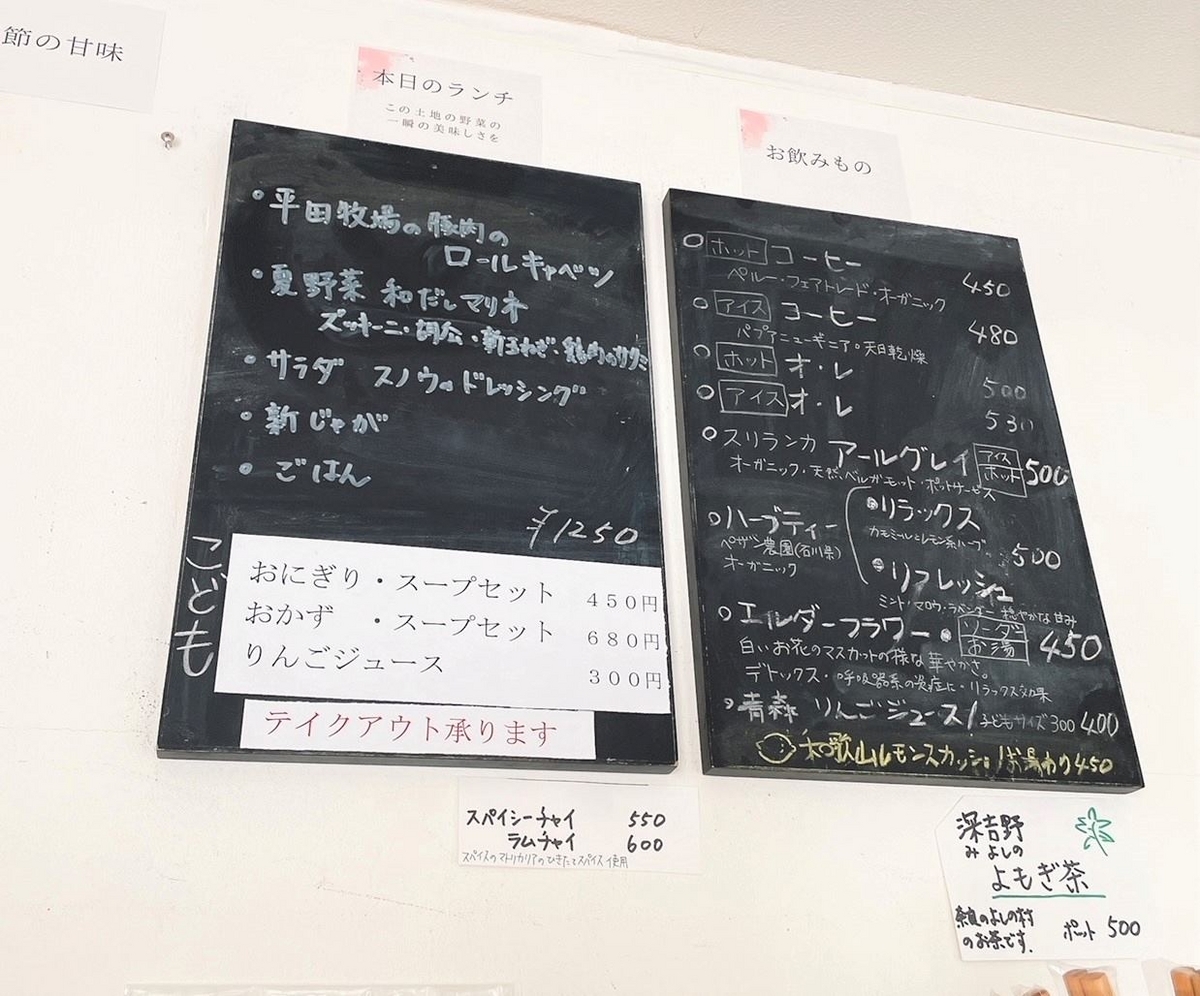 節の甘味
本日のランチ
この土地の野菜の
一瞬の美味しさを
・平田牧場の豚肉の
ロールキャベツ
・夏野菜 和だしマリネ
ズッキーニ・胡瓜・新玉ねぎ・鶏肉のササミ
・サラダ スノウのドレッシング
・新じゃが
・ごはん
¥1250
こども
おにぎり・スープセット 450円
おかず ・スープセット 680円
りんごジュース 300円
テイクアウト承ります
スパイシーチャイ 550
ラムチャイ 600
スパイスのマトリカリアのひきたてスパイス使用
お飲みもの
○ホット コーヒー 450
ペルー・フェアトレード・オーガニック
○アイス コーヒー 480
パプアニューギニア・天日乾燥
○ホット オ・レ 500
○アイス オ・レ 530
○スリランカ アールグレイ アイス ホット 500
オーガニック・天然ベルガモット・ポットサービス
○ハーブティー
ペザン農園(石川県)
オーガニック
・リラックス
カモミールとレモン系ハーブ
500
・リフレッシュ
ミント・マロウ・ラベンダー 穏やかな甘み
○エルダーフラワー・ソーダ お湯 450
白いお花のマスカットの様な華やかさ。
デトックス・呼吸器系の炎症に・リラックス効果
・青森 りんごジュース/子どもサイズ300 400
和歌山レモンスカッシュ/お湯わり450
深吉野
みよしの
よもぎ茶
奈良のよしの村
のお茶です。
ポット 500